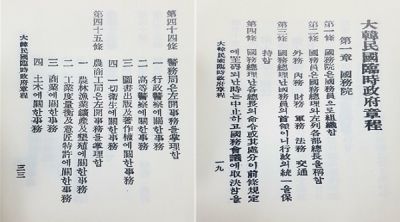 大韓民國臨時政府章程
第一章 國務院
第一條 國務院은國務員으로組織함
第二條 國務員은國務總理와左列各部總長을稱함
外務 內務 財務 軍務 法務 交通
第三條 國務總理난國務員의首領이니行政의統一을保
持함
第四條 國務總理난各總長의命令或其處分이前條規定
되난時난中止하고國務會議에取決함을
大韓民國臨時政府章程
一九
第四十四條 警務局은左開事務를掌理함
一 行政警察에關한事務
二 高等警察에關한事務
三 圖書出版及著作權에關한事務
四 一切衛生에關한事務
第四十五條 農商工局은左開事務를掌理함
一 農林漁業鑛產及墾殖에關한事務
二 工業度量衡及意匠特許에關한事務
三 商業에關한事務
四 土木에關한事務
大韓民國臨時政府章程
三三